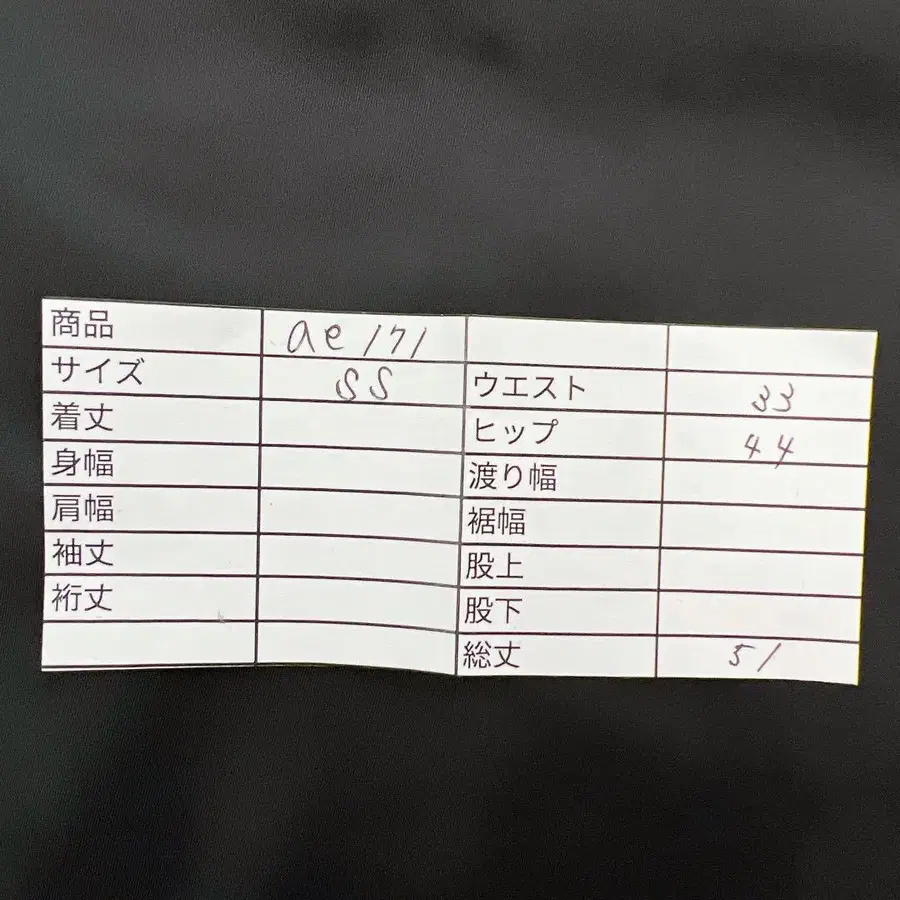 商品 ae171
サイズ SS
着丈
身幅
肩幅
袖丈
裄丈
ウエスト 33
ヒップ 44
渡り幅
裾幅
股上
股下
総丈 51